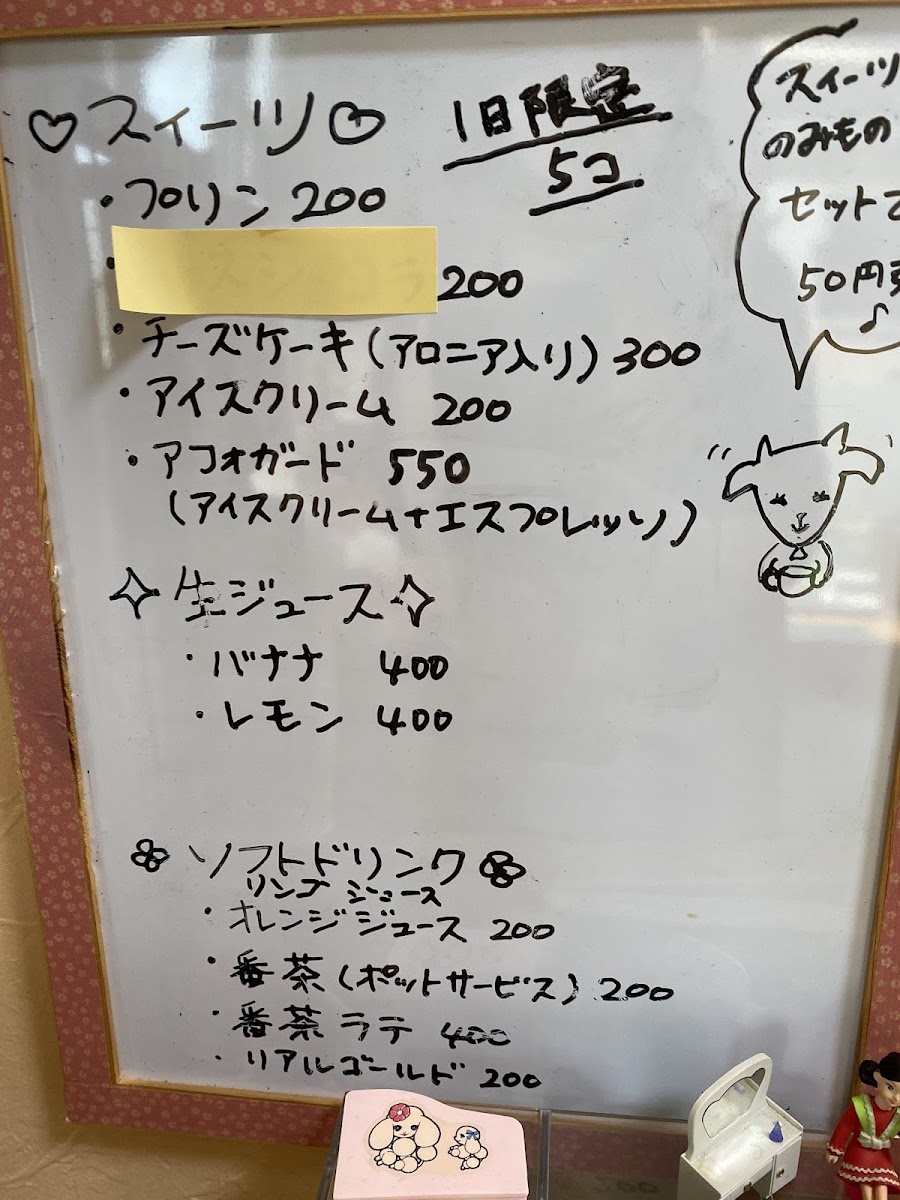 ♡スイーツ♡
1日限定
5コ
・プリン 200
・ 200
・チーズケーキ(アロニア入り) 300
・アイスクリーム 200
・アフォガード 550
(アイスクリーム+エスプレッソ)
スイーツ
のみもの
セットで
50円
♪
✧生ジュース✧
・バナナ 400
・レモン 400
ソフトドリンク
リンゴジュース
・オレンジジュース 200
・番茶(ポットサービス) 200
・番茶ラテ 400
・リアルゴールド 200